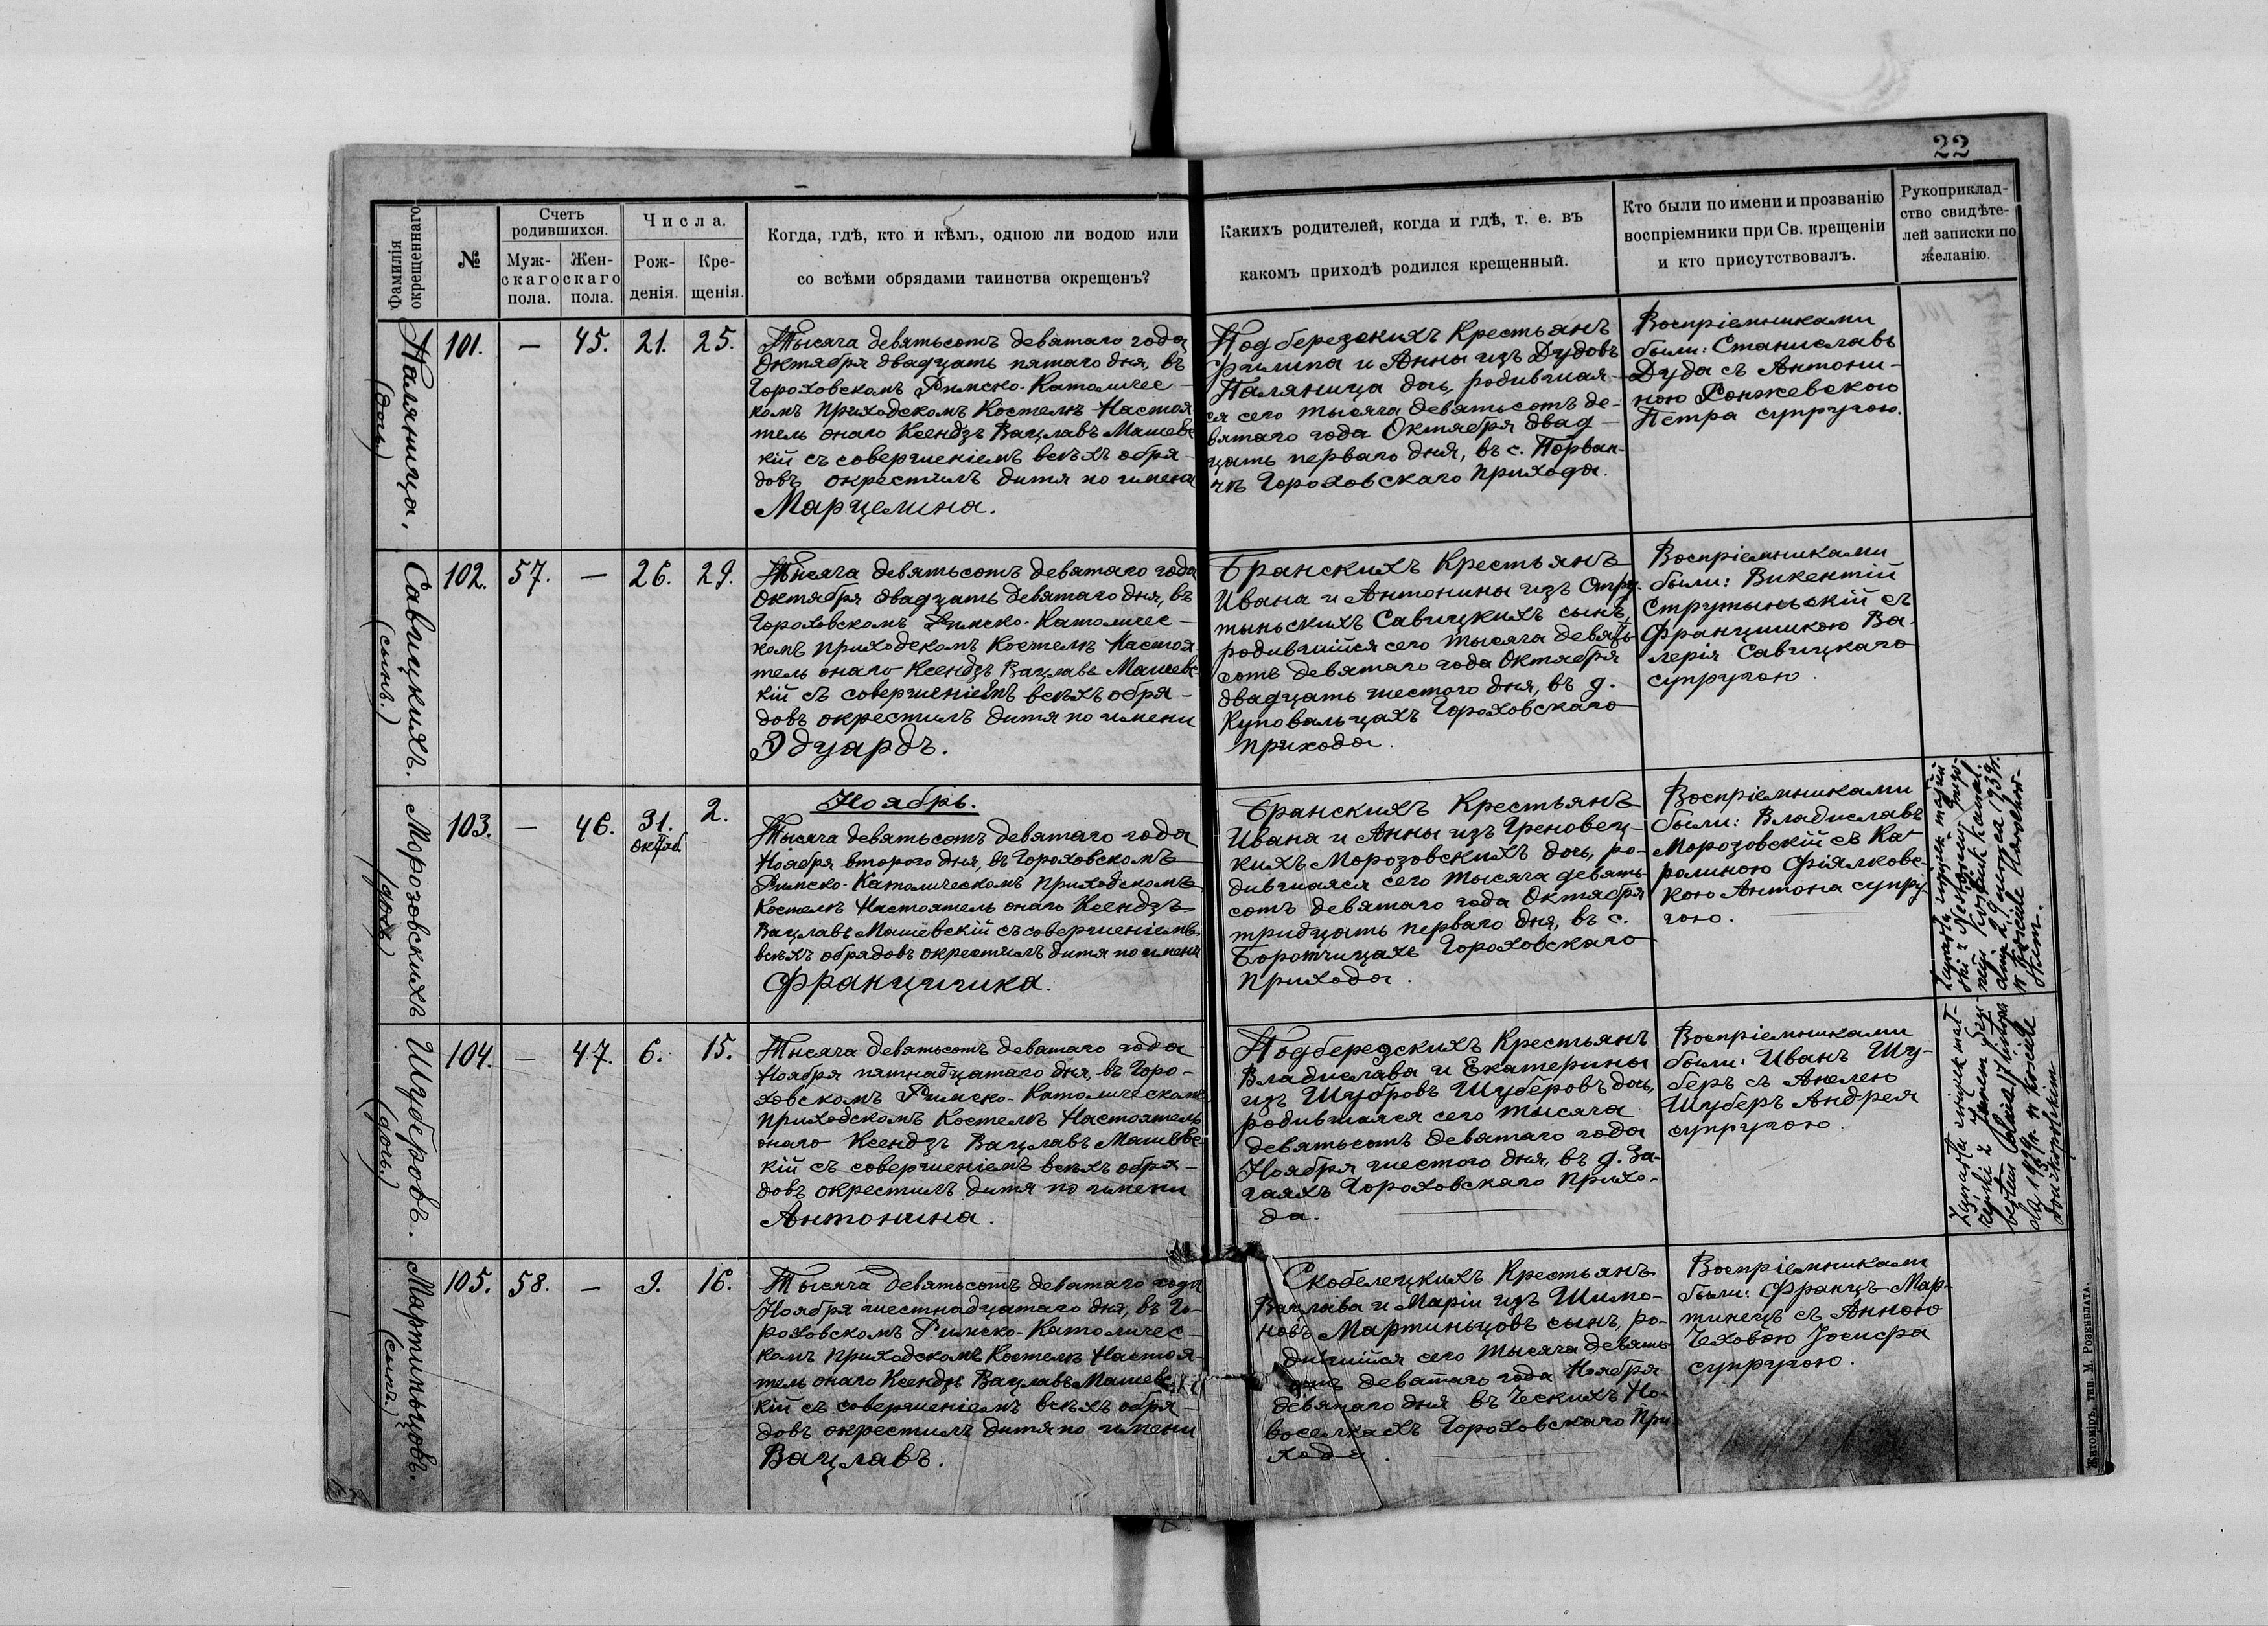 22
Фамилія
окрещеннаго
№
Счетъ
родившихся.
Муж-
скаго
пола.
Жен-
скаго
пола.
Числа.
Рож-
денія.
Кре-
щенія.
Когда, гдѣ, кто и кѣмъ, одною ли водою или
со всѣми обрядами таинства окрещенъ?
Какихъ родителей, когда и гдѣ, т. е. въ
какомъ приходѣ родился крещенный.
Кто были по имени и прозванію
воспріемники при Св. крещеніи
и кто присутствовалъ.
Рукоприклад-
ство свидѣте-
лей записки по
желанію.
Паляница,
(дочь)
101.
—
45.
21.
25.
Тысяча девятьсотъ девятаго года
Октября двадцать пятаго дня, въ
Гороховскомъ Римско-Католичес-
комъ приходскомъ Костелѣ Настоя
тель онаго Ксендзъ Вацлавъ Машевс
кій съ совершеніемъ всѣхъ обря-
довъ окрестилъ дитя по имени
Марцелина.
Подберезскихъ Крестьянъ
Филипа и Анны изъ Дудовъ
Паляница дочь, родившая-
ся сего тысяча девятьсотъ де-
вятаго года Октября двад-
цать перваго дня, въ с. Порван-
чѣ Гороховскаго прихода.
Воспріемниками
были: Станиславъ
Дуда съ Антони-
ною Ронжевскою
Петра супругою.
Савицкихъ.
(сынъ.)
102.
57.
—
26.
29.
Тысяча девятьсотъ девятаго года
Октября двадцать девятаго дня, въ
Гороховскомъ Римско-Католичес-
комъ приходскомъ Костелѣ Настоя
тель онаго Ксендзъ Вацлавъ Машевс-
кій съ совершеніемъ всѣхъ обря-
довъ окрестилъ дитя по имени
Эдуардъ.
Бранскихъ Крестьянъ
Ивана и Антонины изъ Стру-
тыньскихъ Савицкихъ сынъ,
родившійся сего тысяча девять-
сотъ девятаго года Октября
двадцать шестого дня, въ д.
Куповальцахъ Гороховскаго
прихода.
Воспріемниками
были: Викентій
Струтыньскій съ
Францишкою Ва-
лерія Савицкаго
супругою.
Морозовскихъ
(дочь)
103.
—
46.
31.
октяб
2.
Ноябрь.
Тысяча девятьсотъ девятаго года
Ноября второго дня, въ Гороховскомъ
Римско-Католическомъ приходскомъ
Костелѣ Настоятель онаго Ксендзъ
Вацлавъ Машевскій съ совершеніемъ
всѣхъ обрядовъ окрестилъ дитя по имени
Францишка.
Бранскихъ Крестьянъ
Ивана и Анны изъ Греновец-
кихъ Морозовскихъ дочь, ро-
дившаяся сего тысяча девять-
сотъ девятаго года Октября
тридцать перваго дня, въ с.
Боротчицахъ Гороховскаго
прихода.
Воспріемниками
были: Владиславъ
Морозовскій съ Ка-
ролиною Фіялковс-
кою Антона супру-
гою.
Zawarła związek małżeń
ski z
dnia 29 1939r.
w kościele Horochow-
skim.
Шуберовъ.
(дочь.)
104.
—
47.
6.
15.
Тысяча девятьсотъ девятаго года
Ноября пятнадцатаго дня, въ Горо-
ховскомъ Римско-Католическомъ
приходскомъ Костелѣ Настоятель
онаго Ксендзъ Вацлавъ Машевс-
кій съ совершеніемъ всѣхъ обря-
довъ окрестилъ дитя по имени
Антонина.
Подберезскихъ Крестьянъ
Владислава и Екатерины
изъ Шубровъ Шуберовъ дочь,
родившаяся сего тысяча
девятьсотъ девятаго года
Ноября шестого дня, въ д. За-
гаяхъ Гороховскаго прихо-
да.
Воспріемниками
были: Иванъ Шу-
беръ съ Анелею
Шуберъ Андрея
супругою.
Zawarła związek mał-
żeński z Janem
w kościele
Мартиньцовъ.
(сынъ.)
105.
58.
—
9.
16.
Тысяча девятьсотъ девятаго года
Ноября шестнадцатаго дня, въ Го-
роховскомъ Римско-Католичес-
комъ приходскомъ Костелѣ Настоя-
тель онаго Ксендзъ Вацлавъ Машевс
кій съ совершеніемъ всѣхъ обря-
довъ окрестилъ дитя по имени
Вацлавъ.
Скобелецкихъ Крестьянъ
Вацлава и Маріи изъ Шимо-
новъ Мартиньцовъ сынъ, ро-
дившійся сего тысяча девять
сотъ девятаго года Ноября
девятаго дня въ Ческихъ Но-
воселкахъ Гороховскаго При
хода.
Воспріемниками
были: Францъ Мар-
тинецъ съ Анною
Чеховою Іосифа
супругою.
Житоміръ, тип. М. Розенблата.